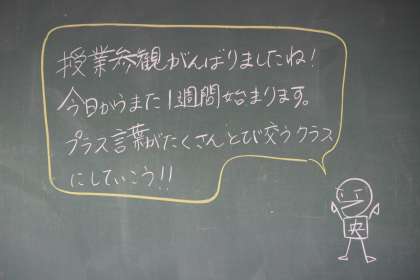 授業参観がんばりましたね!
今日からまた1週間始まります。
プラス言葉がたくさんとび交うクラス
にしていこう!!
央